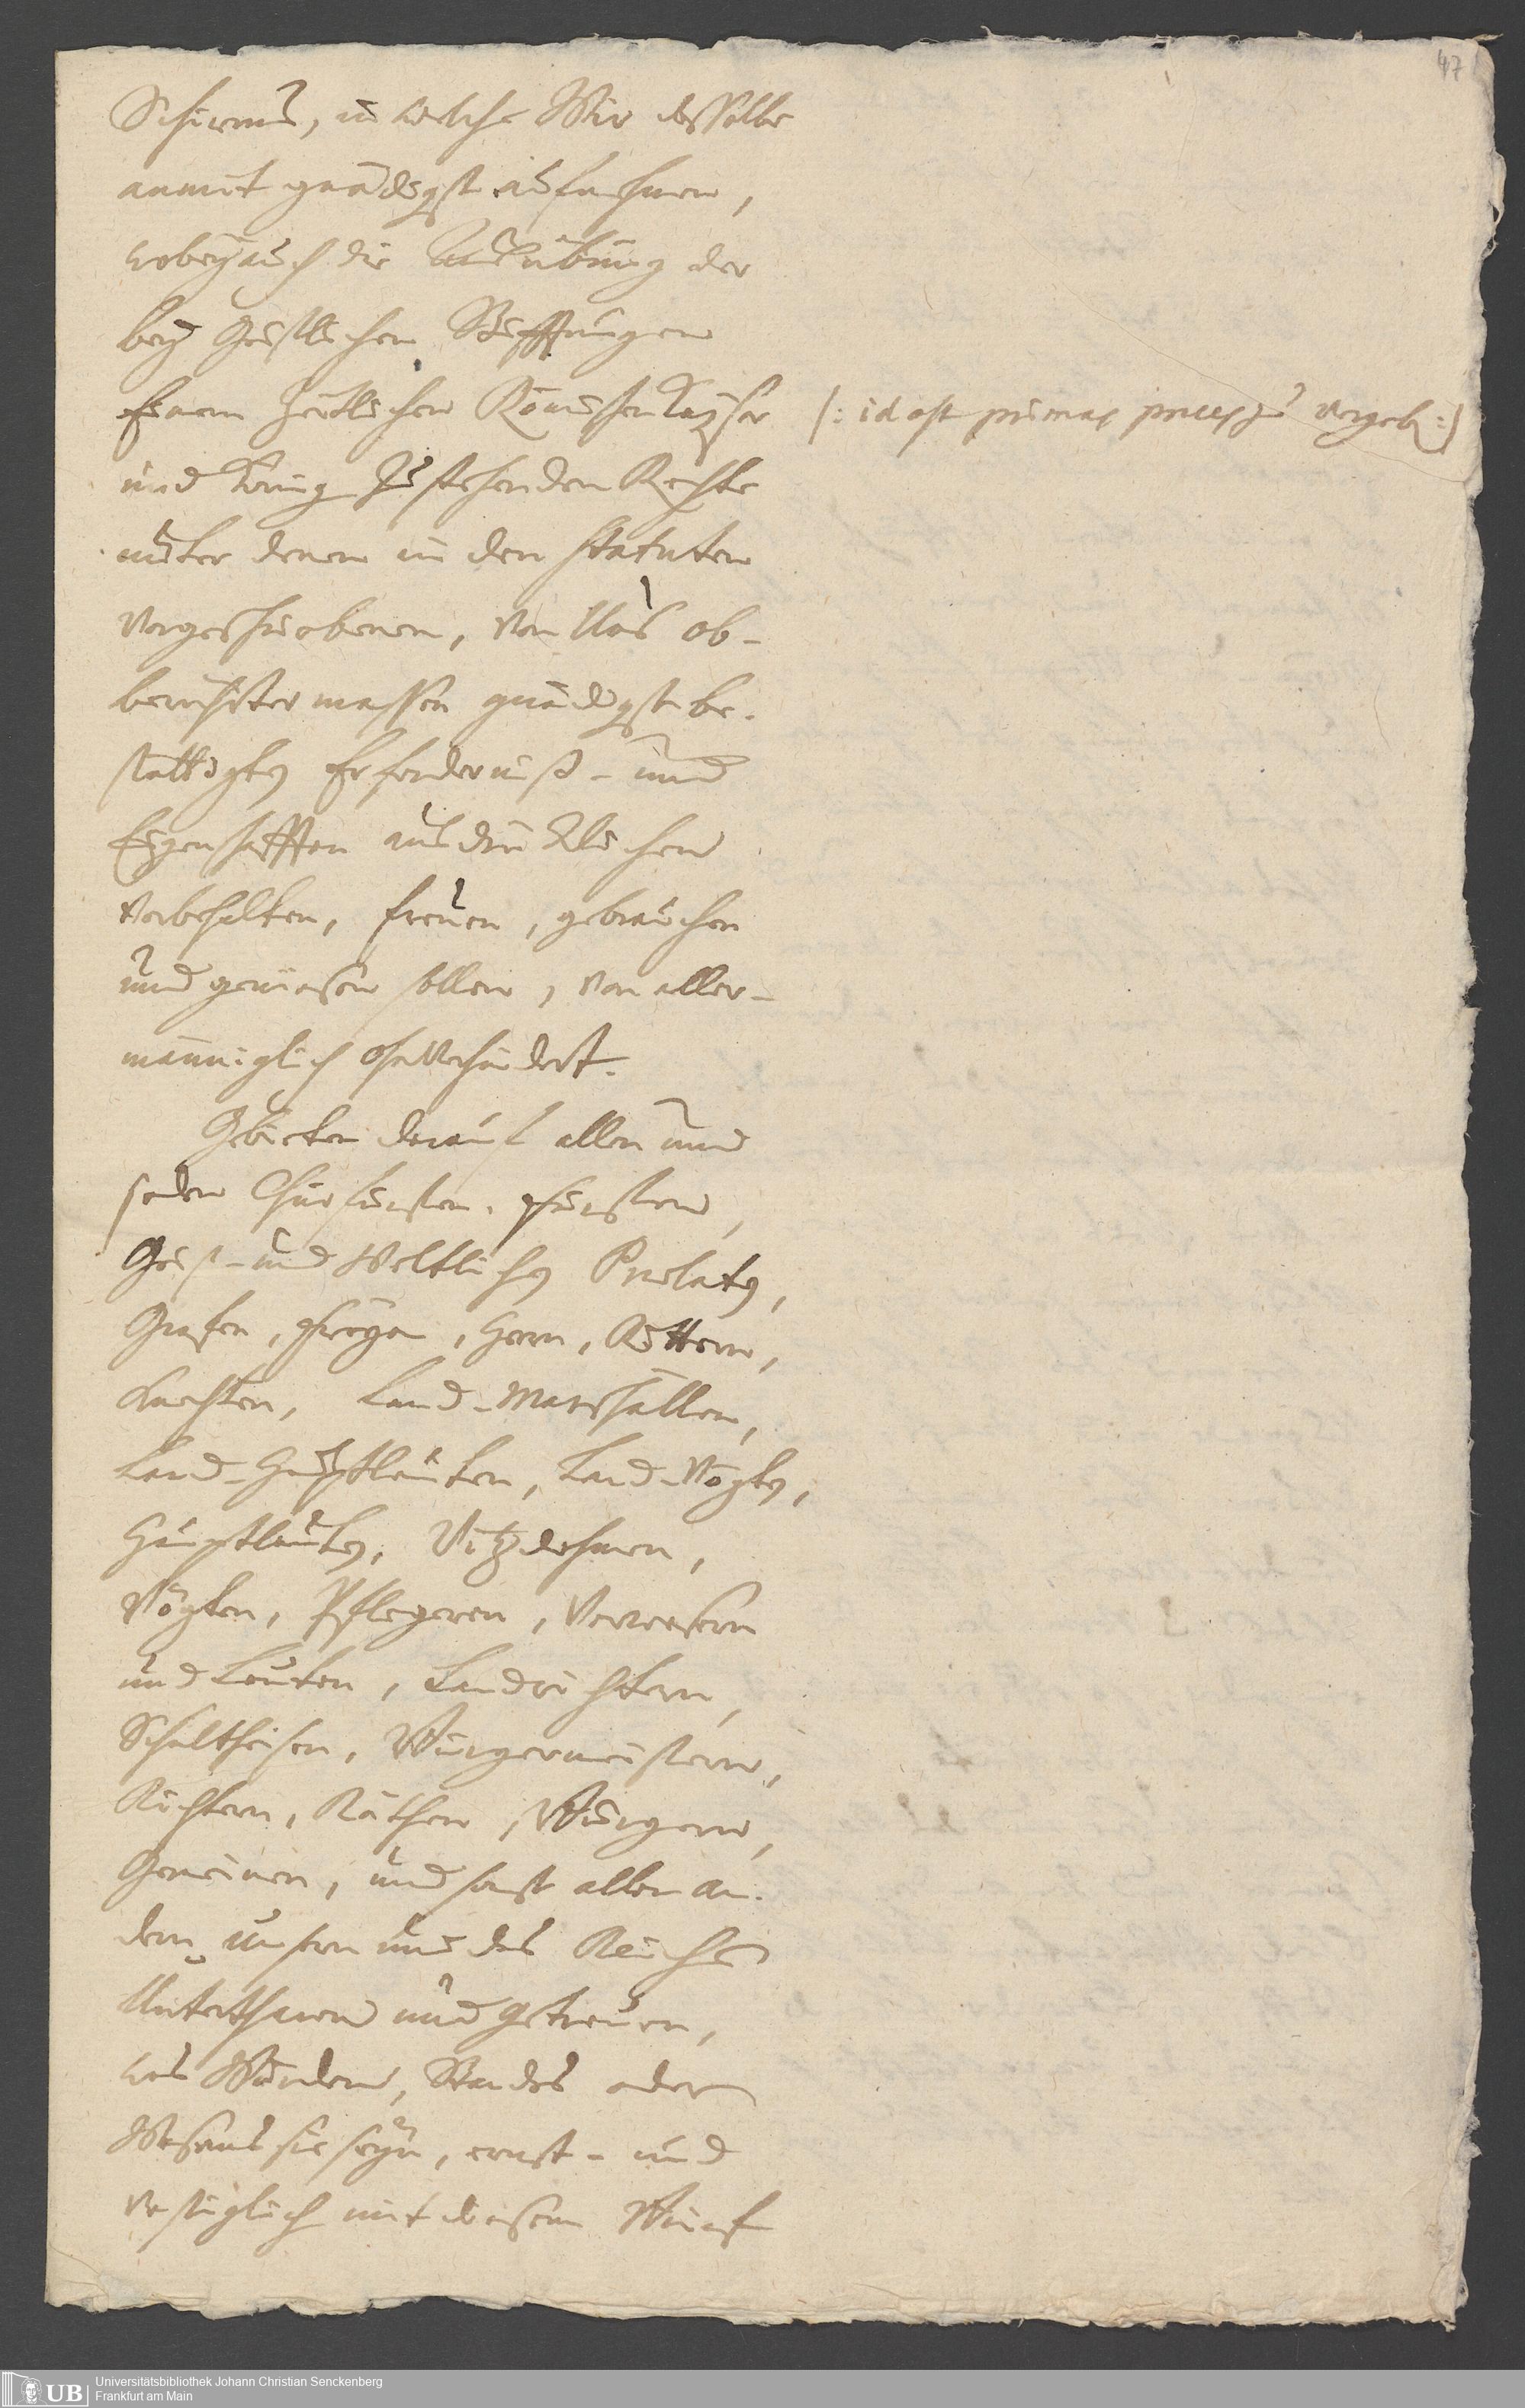 47
Schirms, in welche Wir desselbe
anmit gnädigst aufnehmen,
wobey auch die Ausübung der
bey Geistlichen Stifftungen
Einem Zeitlichen Römischen Kayser
(: id est primas preces zu vergeb. :)
und König Zustehenden Rechte
unter denen in den Statuten
Vorgeschriebenen, Von Uns ob-
berührter massen gnädigst be-
stättigten Erforderniß- und
Eigenschafften ausdrücklichen
Vorbehalten, freuen, gebrauchen
und geniesen sollen, Von aller-
männiglich ohnVerhindert.
Gebieten darauf allen und
jeden Churfürsten, Fürsten,
Geist- und Weltlichen Prælaten,
Grafen, Freyen, Herrn, Rittern,
Knechten, Land-Marschallen,
Land-Hauptleuten, Land-Vögten,
Hauptleuten, Vitzdohmen,
Vögten, Pflegeren, Verwesern
und Leuten, Landrichtern,
Schultheisen, Burgermeistern,
Richtern, Räthen, Burgern,
Gemeinen, und sonst allen an-
dern unsern und des Reichs
Unterthanen und Getreuen,
was Würden, Standes oder
Wesens sie seyn, ernst- und
Vestiglich mit diesem Brief
Universitätsbibliothek Johann Christian Senckenberg
UB Frankfurt am Main